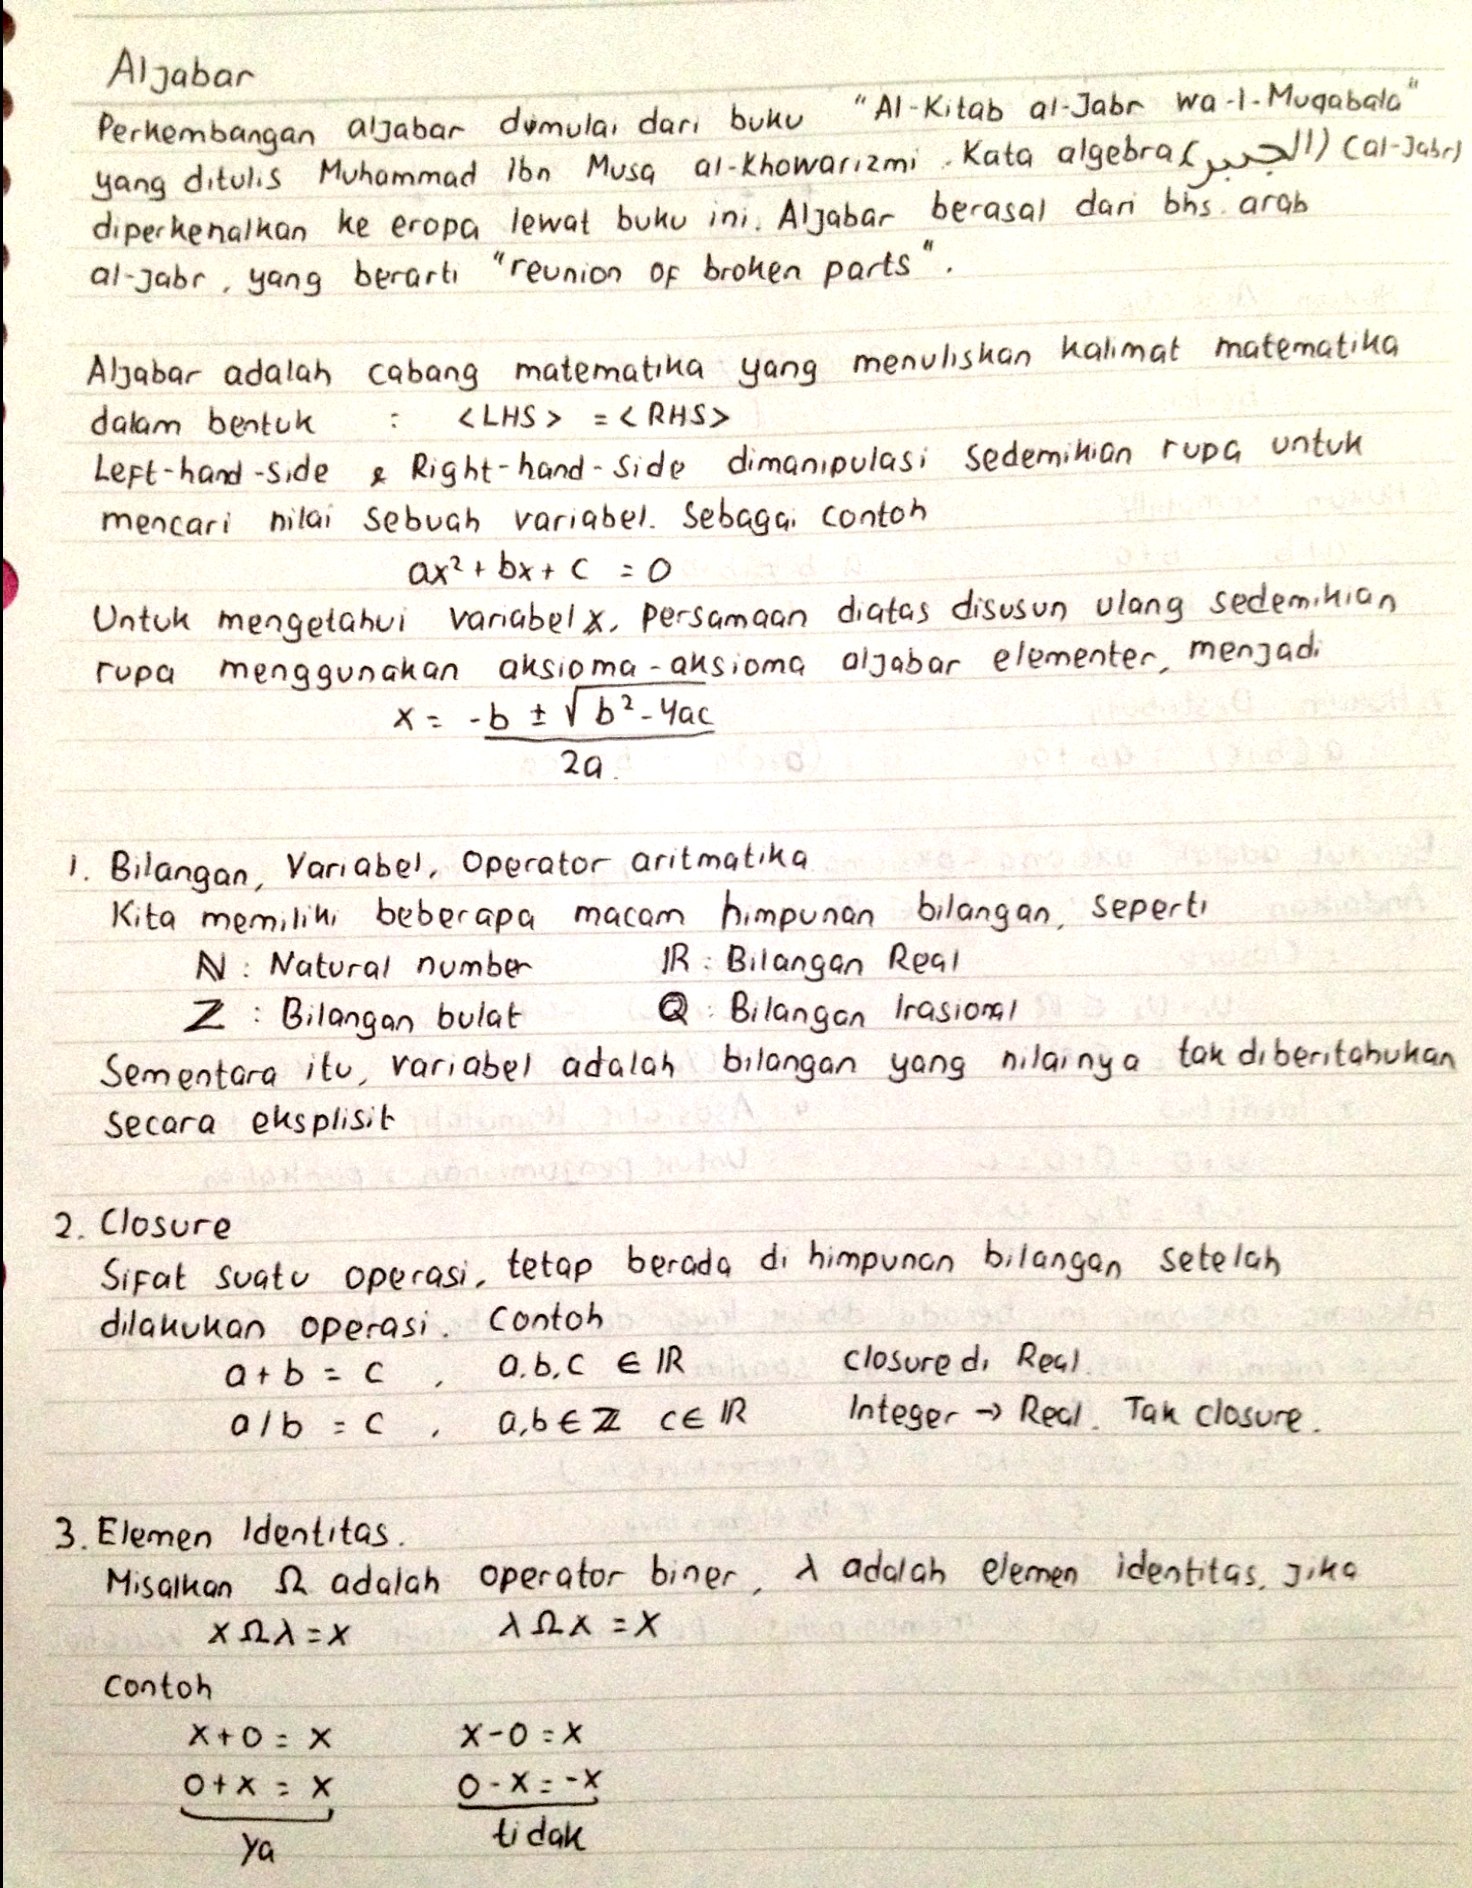 Aljabar
Perkembangan aljabar dimulai dari buku "Al-Kitab al-Jabr wa-l-Muqabala"
yang ditulis Muhammad Ibn Musa al-Khowarizmi. Kata algebra (الجبر) (al-Jabr)
diperkenalkan ke eropa lewat buku ini. Aljabar berasal dari bhs. arab
al-jabr, yang berarti "reunion of broken parts".
Aljabar adalah cabang matematika yang menuliskan kalimat matematika
dalam bentuk : <LHS> = <RHS>
Left-hand-side & Right-hand-side dimanipulasi sedemikian rupa untuk
mencari nilai sebuah variabel. Sebagai contoh
ax² + bx + c = 0
Untuk mengetahui variabel x, persamaan diatas disusun ulang sedemikian
rupa menggunakan aksioma-aksioma aljabar elementer, menjadi
x = -b ± √b² - 4ac
2a.
1. Bilangan, Variabel, Operator aritmatika
Kita memiliki beberapa macam himpunan bilangan, seperti
ℕ : Natural number ℝ : Bilangan Real
ℤ : Bilangan bulat ℚ : Bilangan Irasional
Sementara itu, variabel adalah bilangan yang nilainya tak diberitahukan
secara eksplisit
2. Closure
Sifat suatu operasi, tetap berada di himpunan bilangan setelah
dilakukan operasi. Contoh
a + b = c , a,b,c ∈ ℝ closure di Real.
a/b = c , a,b ∈ ℤ c ∈ ℝ Integer → Real. Tak closure.
3. Elemen Identitas.
Misalkan Ω adalah operator biner, λ adalah elemen identitas, jika
x Ω λ = x λ Ω x = x
Contoh
x + 0 = x x - 0 = x
0 + x = x 0 - x = -x
ya tidak